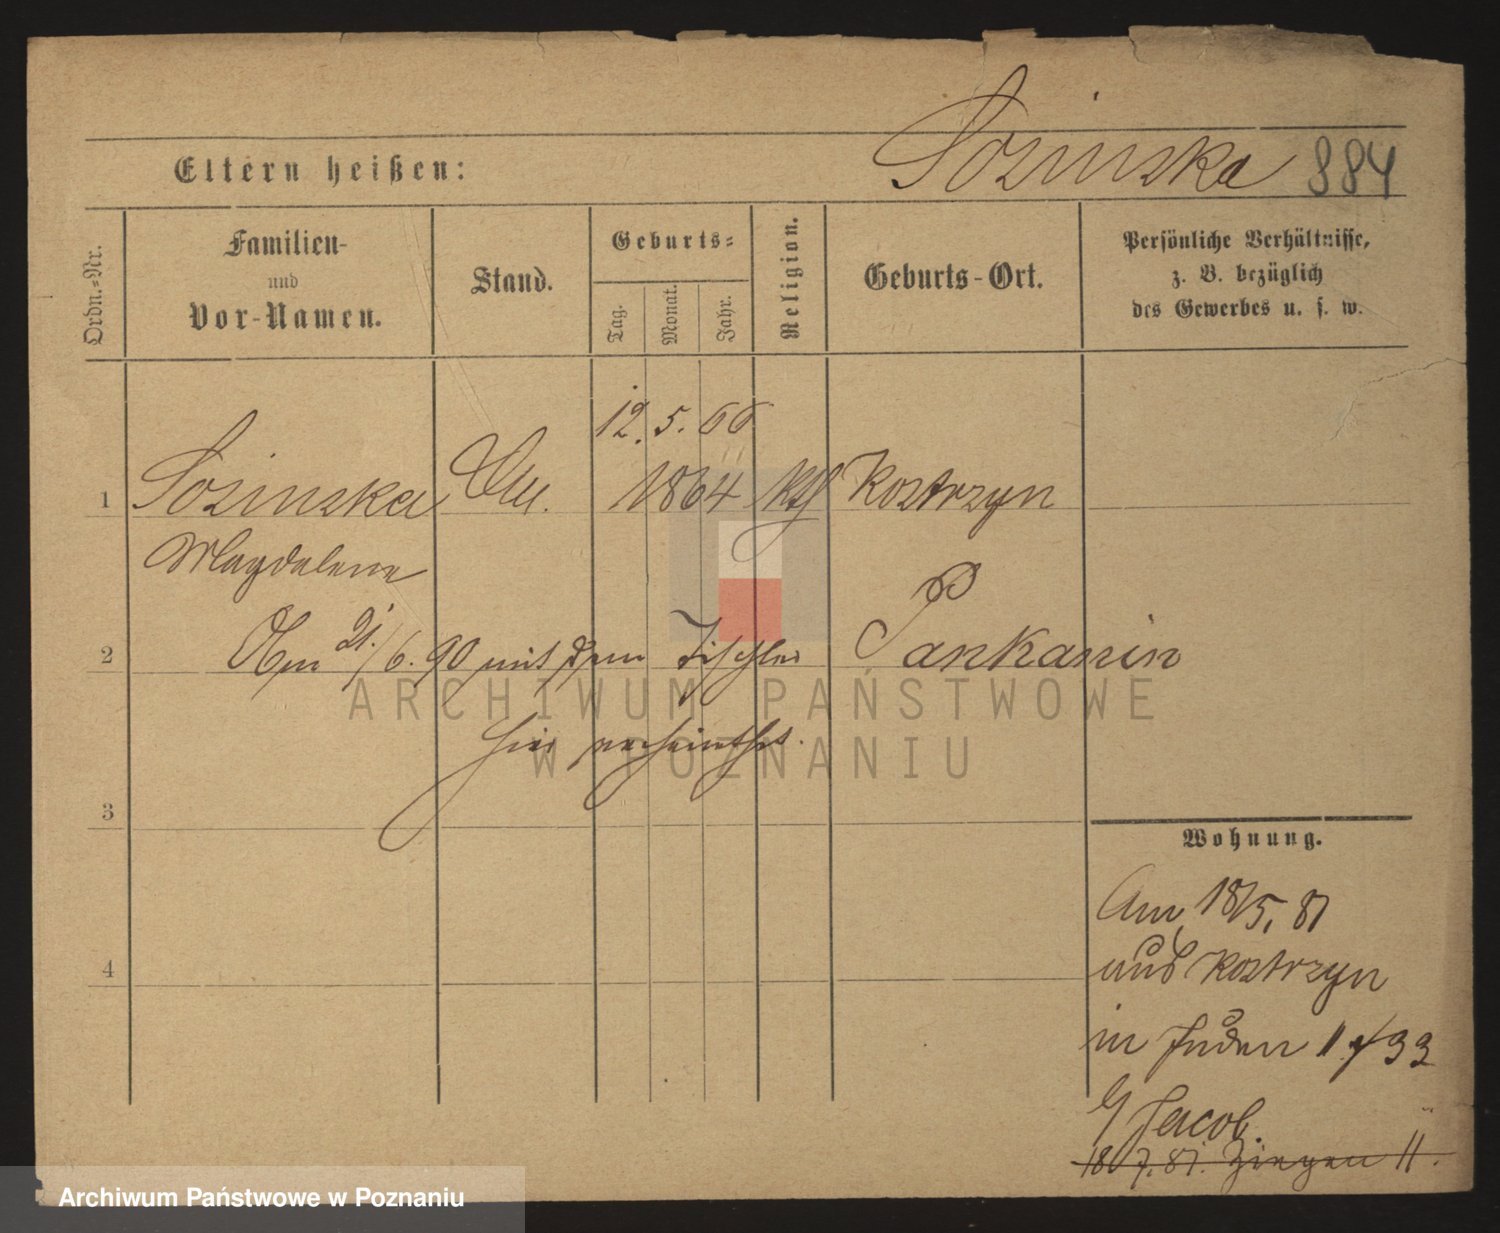 Sozinska 884
Eltern heißen:
Ordn.-Nr.
Familien-
und
Vor-Namen.
Stand.
Geburts-
Tag.
Monat.
Jahr.
Religion.
Geburts-Ort.
Persönliche Verhältnisse,
z. B. bezüglich
des Gewerbes u. s. w.
12. 5. 66
1 Sozinska 1864 kth Kostrzyn
Magdalena
2 Am 21./6. 90 mit dem Tischler Pankanin
hier verheirathet.
3
4
Wohnung.
Am 18/5. 81
aus Kostrzyn
in Juden 11 33
Jacob.
18 7. 81. Ziegen 11.
ARCHIWUM PAŃSTWOWE
W POZNANIU
Archiwum Państwowe w Poznaniu